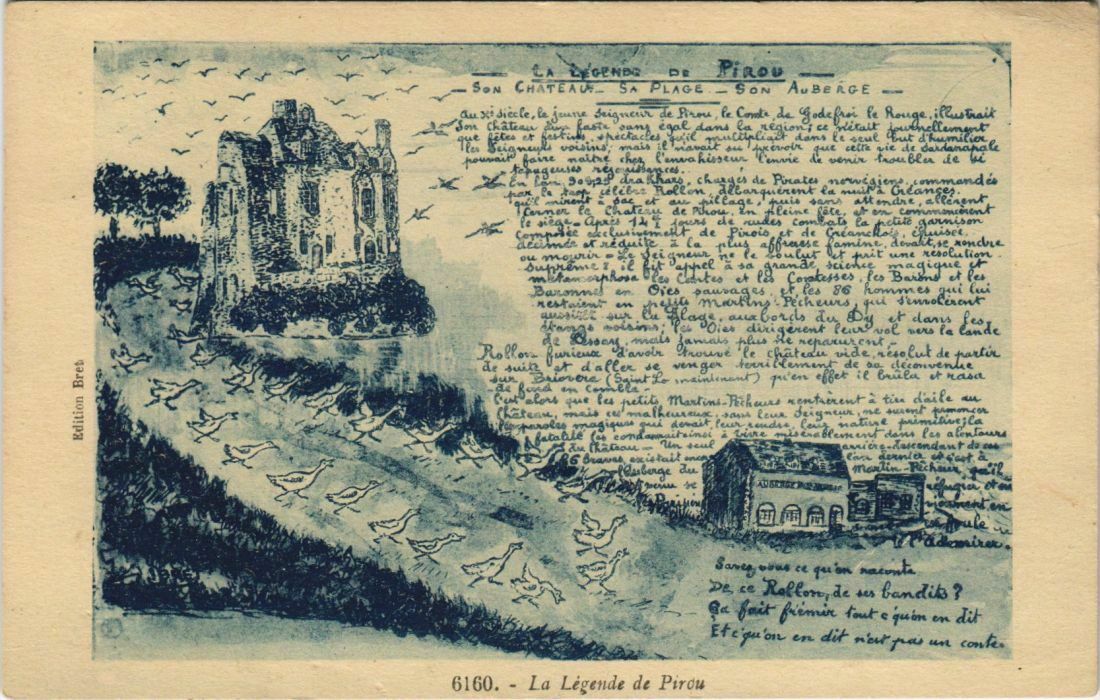 La Légende de Pirou
Son Château – Sa Plage – Son Auberge
Au Xe Siècle, le jeune Seigneur de Pirou, le Comte de Godefroi le Rouge, illustrait
son Château d'un faste sans égal dans la région; ce n'était journellement
que fêtes et festins, spectacles qu'il multipliait dans le seul but d'humilier
les Seigneurs voisins; mais il n'avait su prévoir que cette vie de Sardanapale
pouvait faire naître chez l'envahisseur l'envie de venir troubler de si
tapageuses réjouissances.
En l'an 908, 25 drakkars, chargés de Pirates norvégiens, commandés
par le trop célèbre Rollon, débarquèrent la nuit à Créances
qu'ils mirent à sac et au pillage, puis sans attendre, allèrent
cerner le Chateau de Pirou, en pleine fête, et en commencèrent
le siège – Après 147 jours de rudes combats la petite garnison
composée exclusivement de Pirois et de Créançais, épuisée,
décimée et réduite à la plus affreuse famine, devait se rendre
ou mourir – Le Seigneur ne le voulut et prit une résolution
suprême : il fit appel à sa grande science magique et
métamorphosa les Comtes et les Comtesses, les Barons et les
Baronnes en Oies sauvages, et les 86 hommes qui lui
restaient en petits Martins-Pêcheurs, qui s'envolèrent
aussitôt sur la Plage, aux abords du Dy et dans les
étangs voisins; les Oies dirigèrent leur vol vers la lande
de Lessay, mais jamais plus ne reparurent –
Rollon furieux d'avoir trouvé le château vide, résolut de partir
de suite et d'aller se venger terriblement de sa déconvenue
sur Briovera (Saint Lo maintenant) qu'en effet il brûla et rasa
de fond en comble –
C'est alors que les petits Martins-Pêcheurs rentrèrent à tire d'aile au
Château, mais ces malheureux, sans leur Seigneur, ne surent prononcer
les paroles magiques qui devait leur rendre leur nature primitive; la
fatalité les condamnait ainsi à vivre misérablement dans les alentours
du Château – Un seul
descendant de ces
86 braves existait
l'an dernier et c'est à
l'Auberge du
Martin-Pêcheur qu'il
est venu se
réfugier
les Parisiens
viennent en
foule
l'admirer.
Auberge
Savez vous ce qu'on raconte
De ce Rollon, de ses bandits ?
Ça fait frémir tout c'qu'on en dit
Et c'qu'on en dit n'est pas un conte.
Edition Bret
6160. - La Légende de Pirou